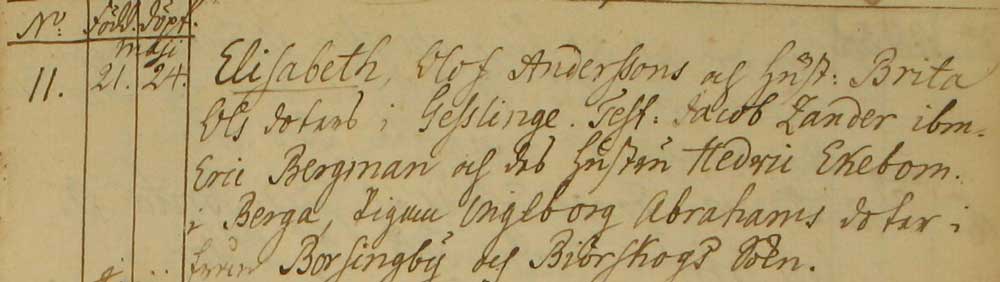 No: Född. döpt.
maji
11. 21. 24. Elisabeth, Olof Anderssons och Hust: Brita
Ols doters i Gesslinge. Test: Jacob Zander ibm.
Eric Bergman och des Hustru Hedvic Ekebom.
i Berga, Pigan Ingeborg Abrahams doter i
Borsingby och Biörskogs Sokn.